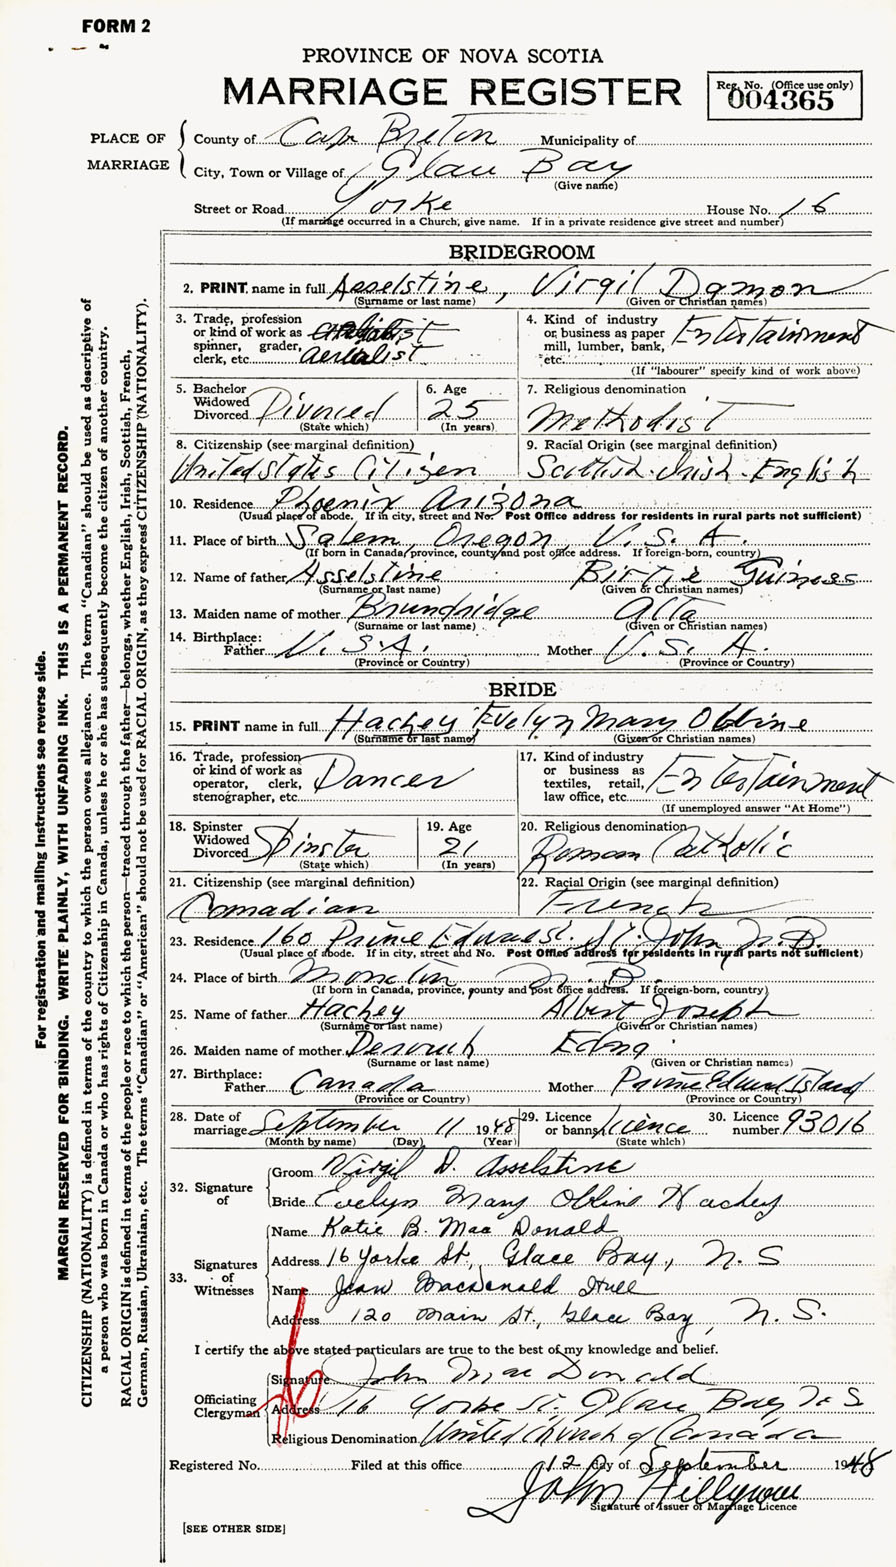 FORM 2
PROVINCE OF NOVA SCOTIA
MARRIAGE REGISTER
Reg. No. (Office use only)
004365
PLACE OF MARRIAGE
County of Cape Breton Municipality of
City, Town or Village of Glace Bay
(Give name)
Street or Road Yorke House No. 16
(If marriage occurred in a Church, give name. If in a private residence give street and number)
BRIDEGROOM
2. PRINT name in full Asselstine, Virgil Damon
(Surname or last name) (Given or Christian names)
3. Trade, profession or kind of work as spinner, grader, clerk, etc. aerialist
4. Kind of industry or business as paper mill, lumber, bank, etc. Entertainment
(If "labourer" specify kind of work above)
5. Bachelor Widowed Divorced Divorced
(State which)
6. Age 25
(In years)
7. Religious denomination
Methodist
8. Citizenship (see marginal definition)
United States Citizen
9. Racial Origin (see marginal definition)
Scottish-Irish-English
10. Residence Phoenix Arizona
(Usual place of abode. If in city, street and No. Post Office address for residents in rural parts not sufficient)
11. Place of birth Salem, Oregon, U.S.A.
(If born in Canada, province, county and post office address. If foreign-born, country)
12. Name of father Asselstine Birtie Guiness
(Surname or last name) (Given or Christian names)
13. Maiden name of mother Brundridge Alta
(Surname or last name) (Given or Christian names)
14. Birthplace:
Father U.S.A. Mother U.S.A.
(Province or Country) (Province or Country)
BRIDE
15. PRINT name in full Hachey Evelyn Mary Obline
(Surname or last name) (Given or Christian names)
16. Trade, profession or kind of work as operator, clerk, stenographer, etc. Dancer
17. Kind of industry or business as textiles, retail, law office, etc. Entertainment
(If unemployed answer "At Home")
18. Spinster Widowed Divorced Spinster
(State which)
19. Age 21
(In years)
20. Religious denomination
Roman Catholic
21. Citizenship (see marginal definition)
Canadian
22. Racial Origin (see marginal definition)
French
23. Residence 160 Prince Edward St. St. John N.B.
(Usual place of abode. If in city, street and No. Post Office address for residents in rural parts not sufficient)
24. Place of birth Moncton N.B.
(If born in Canada, province, county and post office address. If foreign-born, country)
25. Name of father Hachey Albert Joseph
(Surname or last name) (Given or Christian names)
26. Maiden name of mother Edna
(Surname or last name) (Given or Christian names)
27. Birthplace:
Father Canada Mother Prince Edward Island
(Province or Country) (Province or Country)
28. Date of marriage September 11 1948
(Month by name) (Day) (Year)
29. Licence or banns licence
(State which)
30. Licence number 93016
32. Signature of
Groom Virgil D. Asselstine
Bride Evelyn Mary Obline Hachey
33. Signatures of Witnesses
Name Katie B. MacDonald
Address 16 Yorke St., Glace Bay, N.S
Name Jean MacDonald Hull
Address 120 Main St., Glace Bay, N.S.
I certify the above stated particulars are true to the best of my knowledge and belief.
Officiating Clergyman
Signature John MacDonald
Address 16 Yorke St. Glace Bay N S
Religious Denomination United Church of Canada
Registered No. Filed at this office 12 day of September 1948
John
Signature of Issuer of Marriage Licence
[SEE OTHER SIDE]
For registration and mailing instructions see reverse side.
MARGIN RESERVED FOR BINDING. WRITE PLAINLY, WITH UNFADING INK. THIS IS A PERMANENT RECORD.
CITIZENSHIP (NATIONALITY) is defined in terms of the country to which the person owes allegiance. The term "Canadian" should be used as descriptive of
a person who was born in Canada or who has rights of Citizenship in Canada, unless he or she has subsequently become the citizen of another country.
RACIAL ORIGIN is defined in terms of the people or race to which the person—traced through the father—belongs, whether English, Irish, Scottish, French,
German, Russian, Ukrainian, etc. The terms "Canadian" or "American" should not be used for RACIAL ORIGIN, as they express CITIZENSHIP (NATIONALITY).